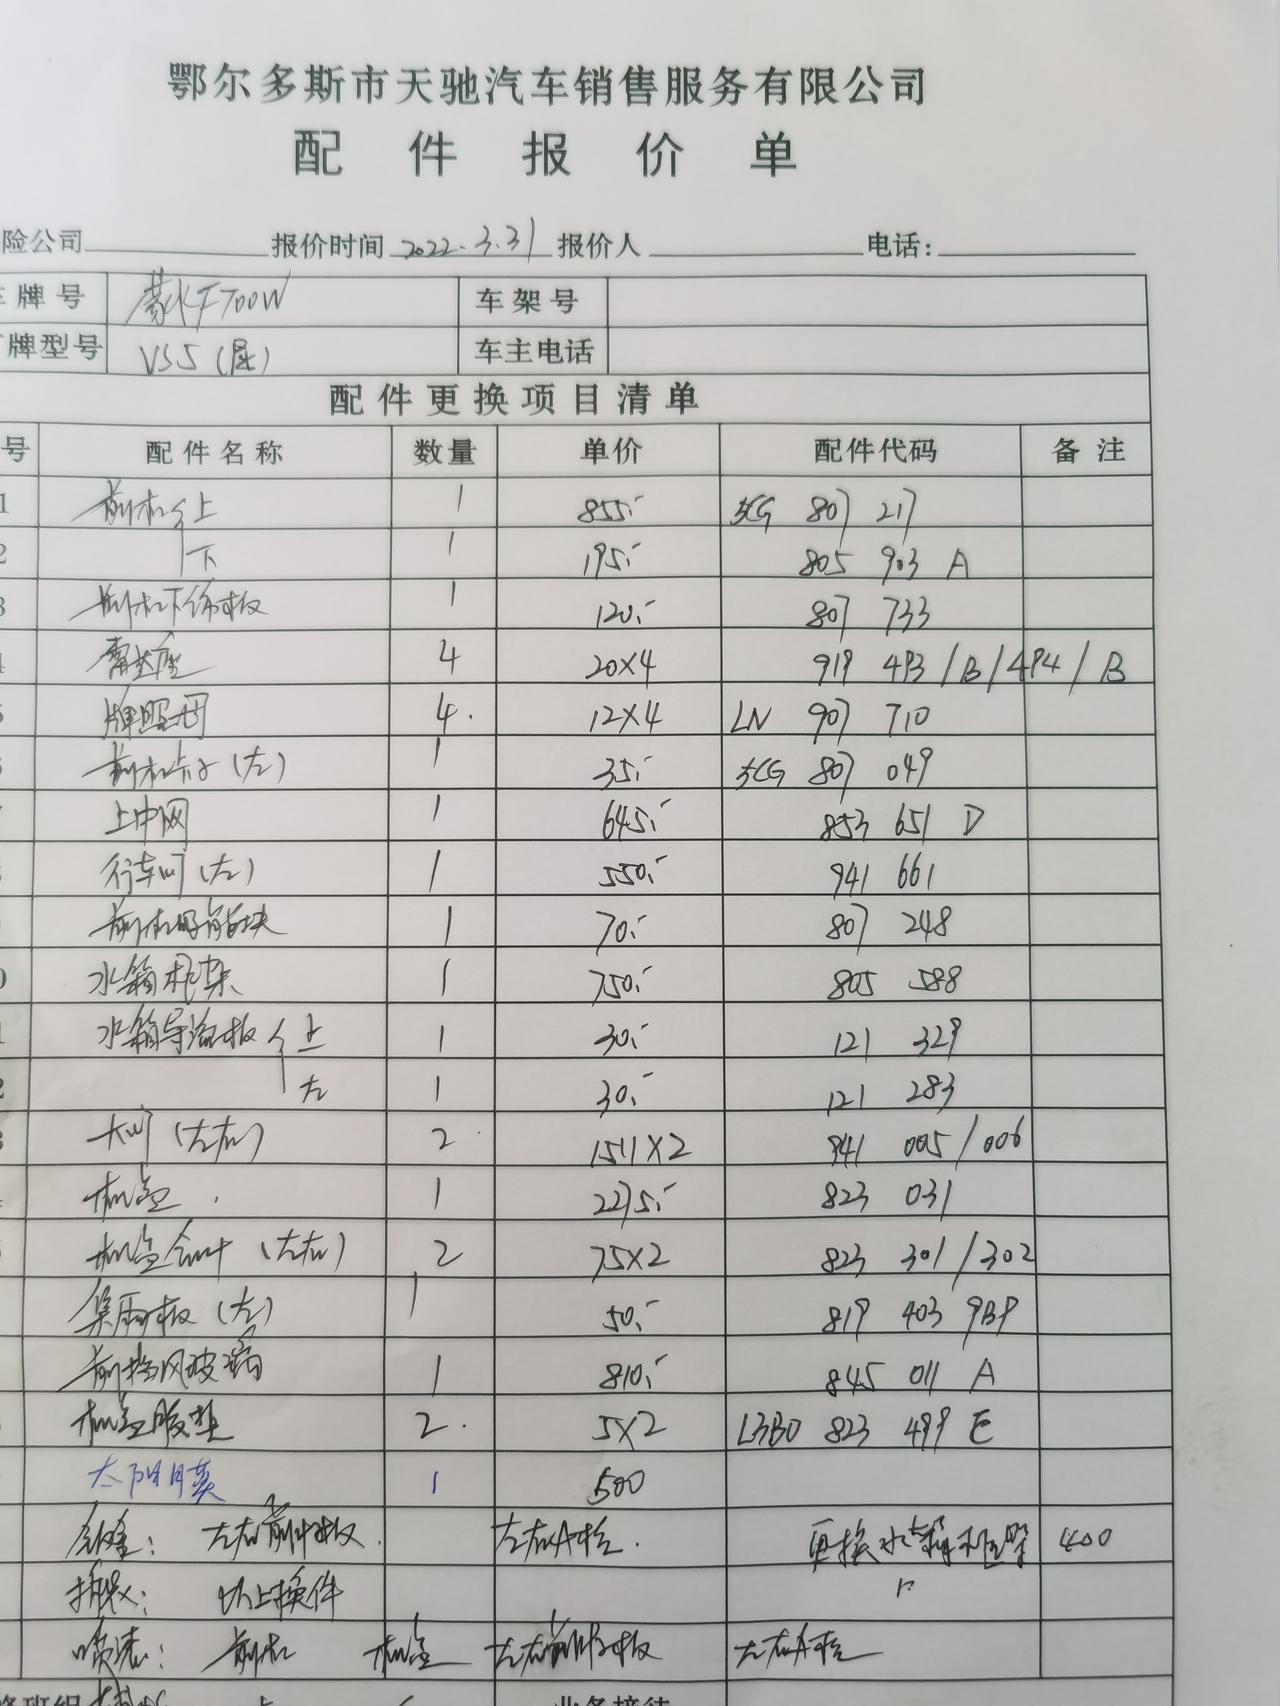 鄂尔多斯市天驰汽车销售服务有限公司
配件报价单
险公司 报价时间 2022.3.31 报价人 电话：
牌号 蒙KF700W 车架号
牌型号 VS5 车主电话
配件更换项目清单
号 配件名称 数量 单价 配件代码 备注
1 前杠 上 1 855.- 5CG 807 217
2 下 1 195.- 805 903 A
3 前杠下饰板 1 120.- 807 733
雷达座 4 20×4 919 493/B/494/B
牌照 4. 12×4 LN 907 710
前杠卡子(左) 1 35.- 5CG 807 049
上中网 1 645.- 853 651 D
行车灯(左) 1 550.- 941 661
前杠吸能块 1 70.- 807 248
0 水箱框架 1 750.- 805 588
1 水箱导流板 上 1 30.- 121 329
2 左 1 30.- 121 283
3 大灯(左右) 2 1511×2 941 005/006
机盖 1 2275.- 823 031
机盖合叶(左右) 2 75×2 823 301/302
集雨板(左) 1 50.- 819 403 9B9
前挡风玻璃 1 810.- 845 011 A
机盖胶垫 2. 5×2 L3B0 823 499 E
太阳膜 1 500
钣金： 左右前叶板. 左右A柱. 更换水箱框架 400
拆装： 以上换件
喷漆： 前杠 机盖 左右前叶板 左右A柱
修班组 业务接待